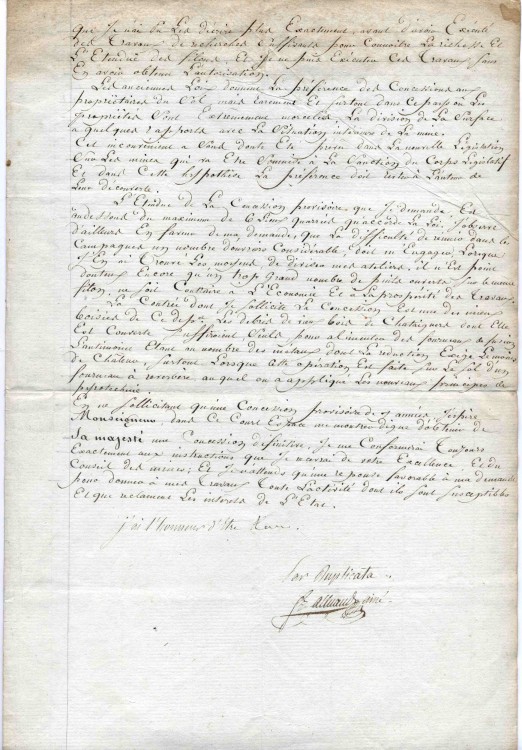 que Je n'ai pu Les décrire plus Exactement, avant d'avoir Exécuté
des travaux de recherches suffisants pour Connoitre La richesse Et
L'Etendue des filons; Et Je ne puis Exécuter Ces travaux sans
En avoir obtenu L'autorisation.
Les anciennes Loix donnent La préférence des Concessions aux
propriétaires du Sol, mais rarement Et surtout dans Ce pais où Les
propriétés Sont Extremement morcelées La division de La Surface
a quelques rapports avec La Situation intérieure de La mine.
Cet inconvénient a Sans doute Eté prévu dans La nouvelle Législation
Sur Les mines qui va Etre Soumise à La Sanction du Corps Législatif
Et dans Cette hypothèse La préférence doit rester à L'auteur de
Leur découverte.
L'Etendue de La Concession provisoire, que Je demande Est
au dessous du maximum de 6 Lieues quarrées qu'accorde La Loi, J'observe
d'ailleurs En faveur de ma demande, que La difficulté de réunir dans les
Campagnes un nombre d'ouvriers Considérable, doit m'Engager Lorsque
J'En ai trouvé Les moyens de diviser mes ateliers, il n'Est point
douteux Encore qu'un trop grand nombre de puits ouverts sur le même
filon, ne soit Contraire à L'Economie Et à La prospérité des travaux.
La Contrée dont Je sollicite La Concession Est une des mieux
boisées de Ce dépt. Le débris de bois de Chataigners dont Elle
Est Couverte suffiroient Seuls pour alimenter des fourneaux
L'antimoine Etant au nombre des métaux dont La réduction Exige Le moins
de Chaleur, surtout Lorsque Cette opération Est faite sur Le Sol d'un
fourneau à réverbère auquel on a appliqué Les nouveaux principes de
pyrotechnie.
En ne sollicitant qu'une Concession provisoire de années, J'espère
Monseigneur, dans Ce Court Espace me montrer digne d'obtenir de
Sa majesté une Concession définitive, Je me Conformerai Toujours
Exactement aux instructions que Je recevrai de votre Excellence Et du
Conseil des mines; Et Je n'attends qu'une réponse favorable à ma demande
pour donner à mes travaux Toute L'activité dont ils sont susceptibles
Et que réclament Les intérêts de L'Etat.
j'ai l'honneur d'être
Par Duplicata
alluaud ainé